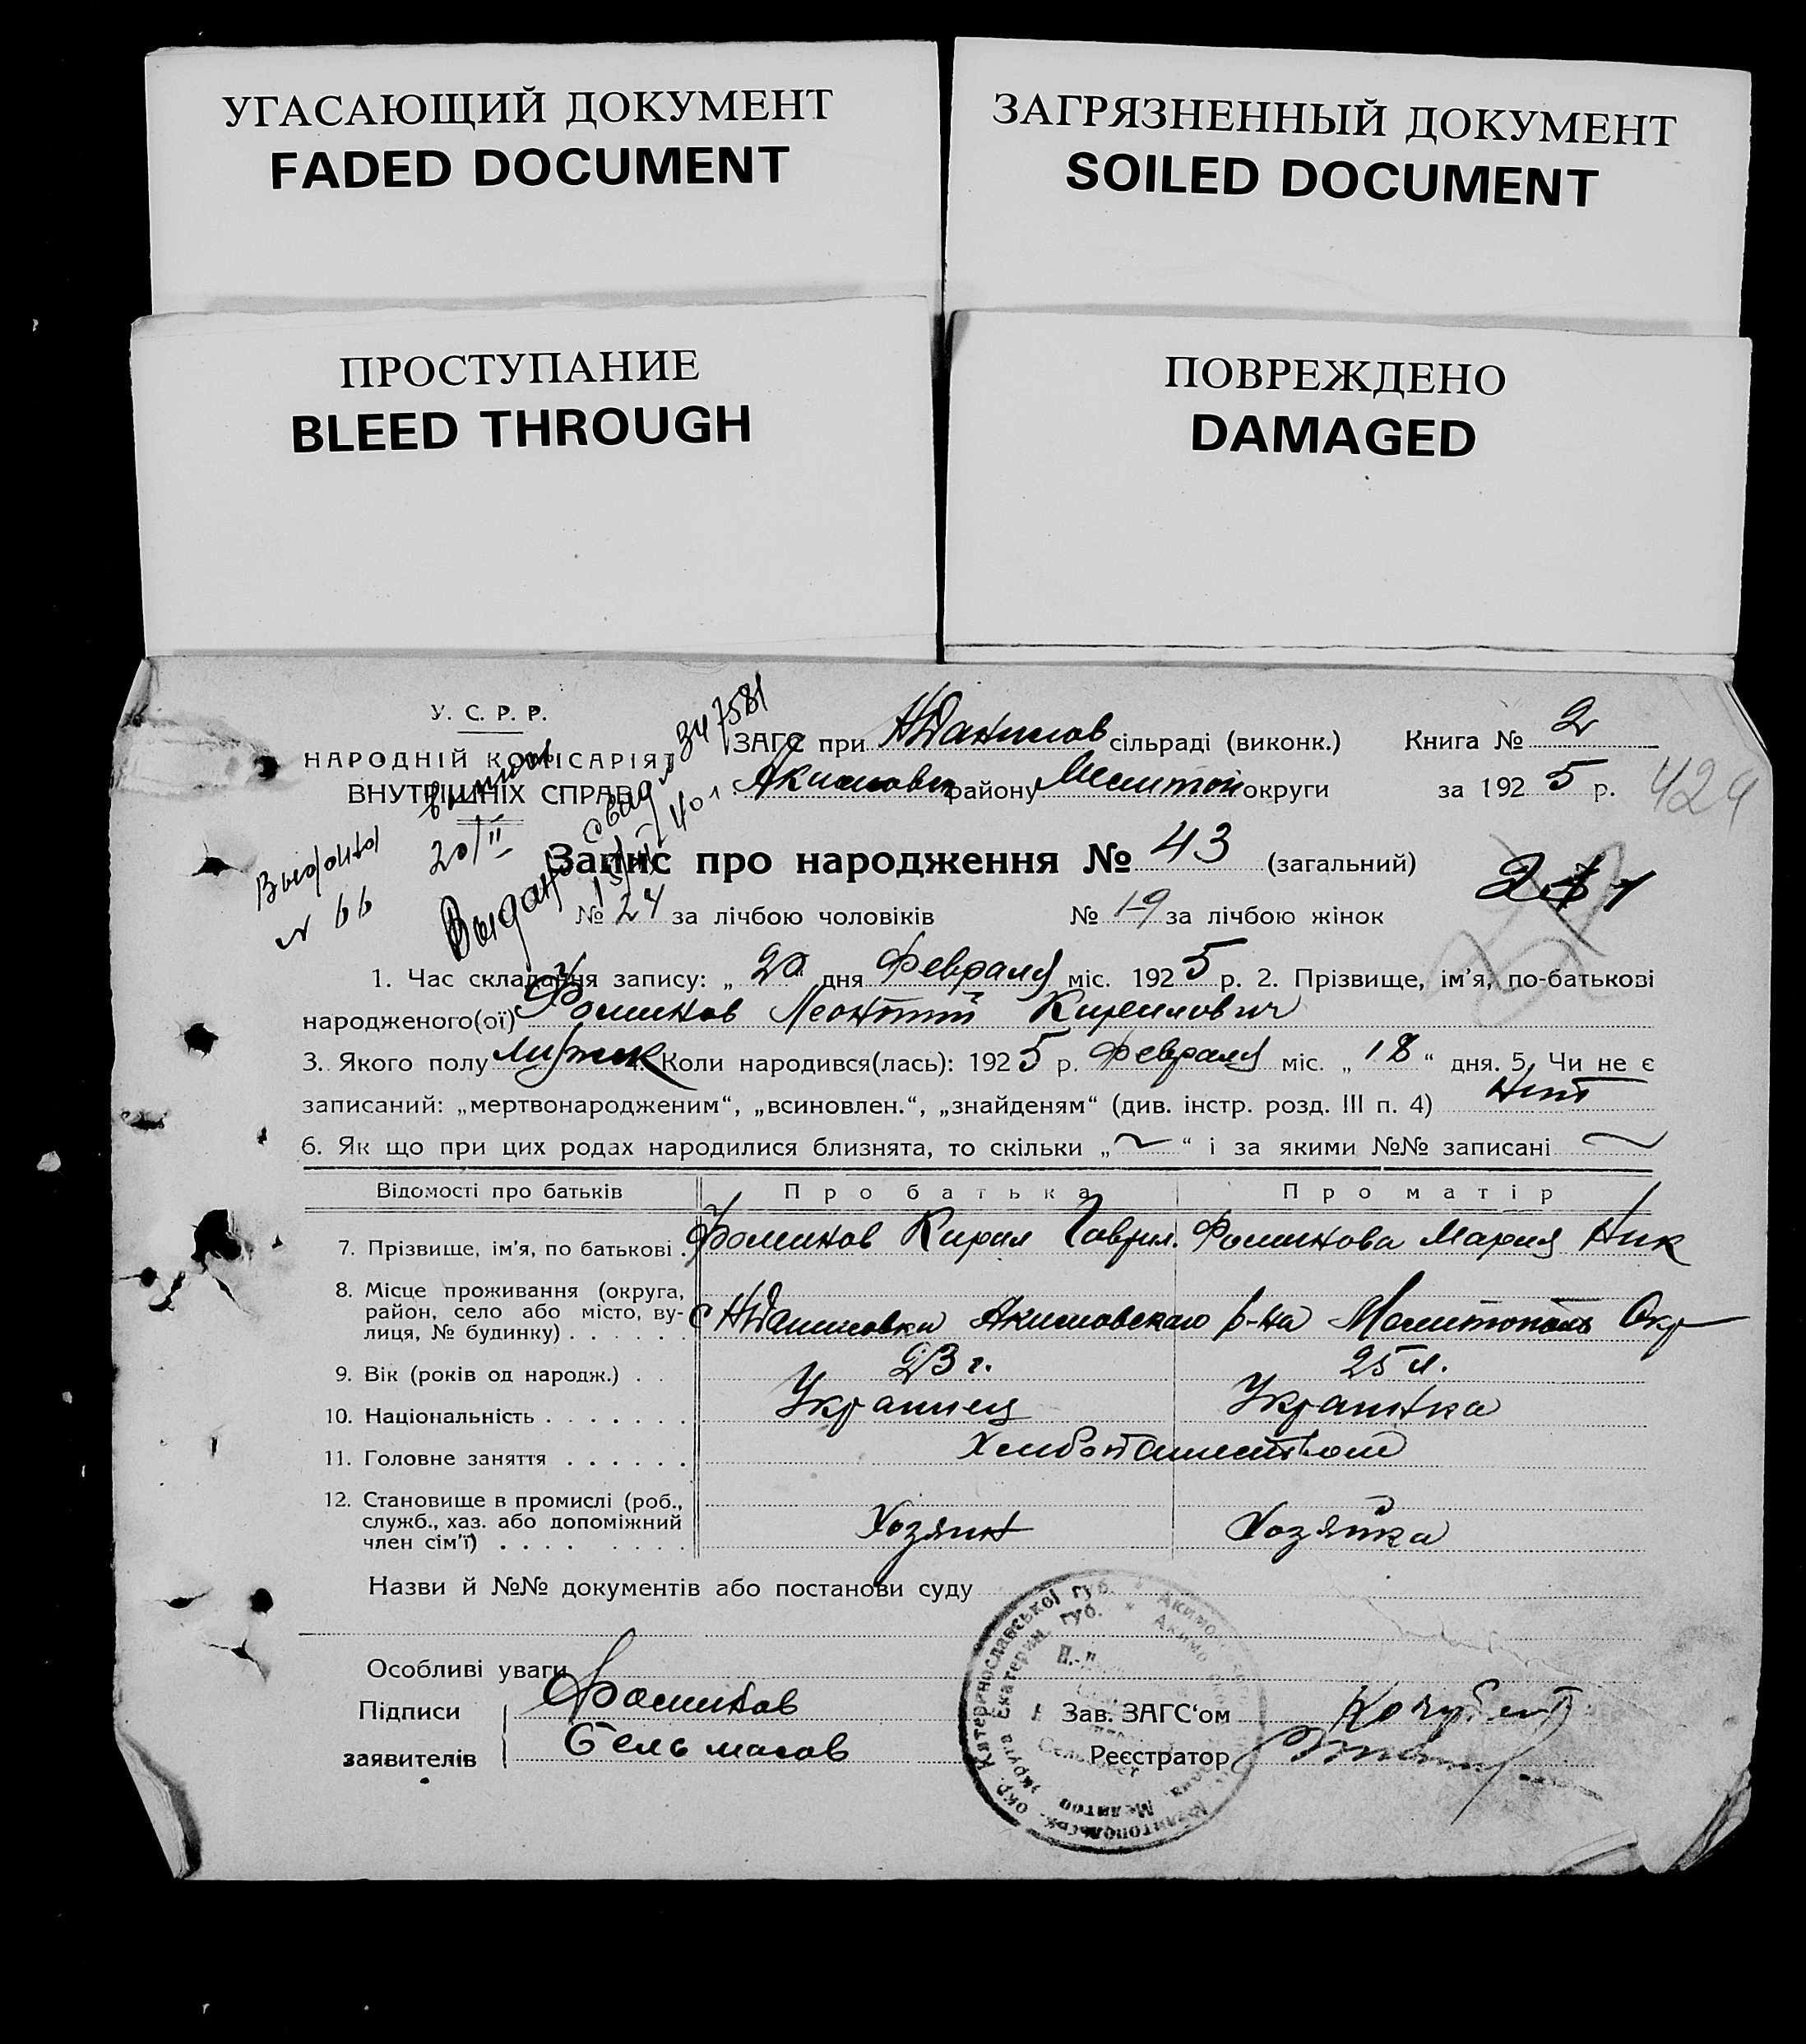 УГАСАЮЩИЙ ДОКУМЕНТ
FADED DOCUMENT
ЗАГРЯЗНЕННЫЙ ДОКУМЕНТ
SOILED DOCUMENT
ПРОСТУПАНИЕ
BLEED THROUGH
ПОВРЕЖДЕНО
DAMAGED
У. С. Р. Р.
НАРОДНІЙ КОМІСАРІЯТ
ВНУТРІШНІХ СПРАВ
ЗАГС при НДанилов сільраді (виконк.) Книга № 2
Акимовск району Мелитоп округи за 1925 р.
424
Выдана
№ 66
20/II
Выдан свид
347581
Запис про народження № 43 (загальний)
№ 24 за лічбою чоловіків № 19 за лічбою жінок
1. Час складання запису: „ 20 “ дня Февраля міс. 1925 р. 2. Прізвище, ім'я, по-батькові
народженого(ої) Фоминов Леонтий Кирилович
3. Якого полу мужск 4. Коли народився(лась): 1925 р. Февраля міс. „ 18 “ дня. 5. Чи не є
записаний: „мертвонародженим“, „всиновлен.“, „знайденям“ (див. інстр. розд. III п. 4) Нет
6. Як що при цих родах народилися близнята, то скільки „ ~ “ і за якими №№ записані ~
Відомості про батьків Про батька Про матір
7. Прізвище, ім'я, по батькові . Фоминов Кирил Гаврил. Фоминова Мария Ник
8. Місце проживання (округа,
район, село або місто, ву-
лиця, № будинку) . . . . . . с НДаниловка Акимовского р-на Мелитополь Окр
9. Вік (років од народж.) . . 23 г. 25 л.
10. Національність . . . . . . . Украинец Украинка
11. Головне заняття . . . . . . Хлебопашеством
12. Становище в промислі (роб.,
служб., хаз. або допоміжний
член сім'ї) . . . . . . . . Хозяин Хозяйка
Назви й №№ документів або постанови суду
Особливі уваги
Підписи Фоминов Зав. ЗАГС‘ом
заявителів Реєстратор
окр. Катеринославської губ.
округа Екатерин. губ.